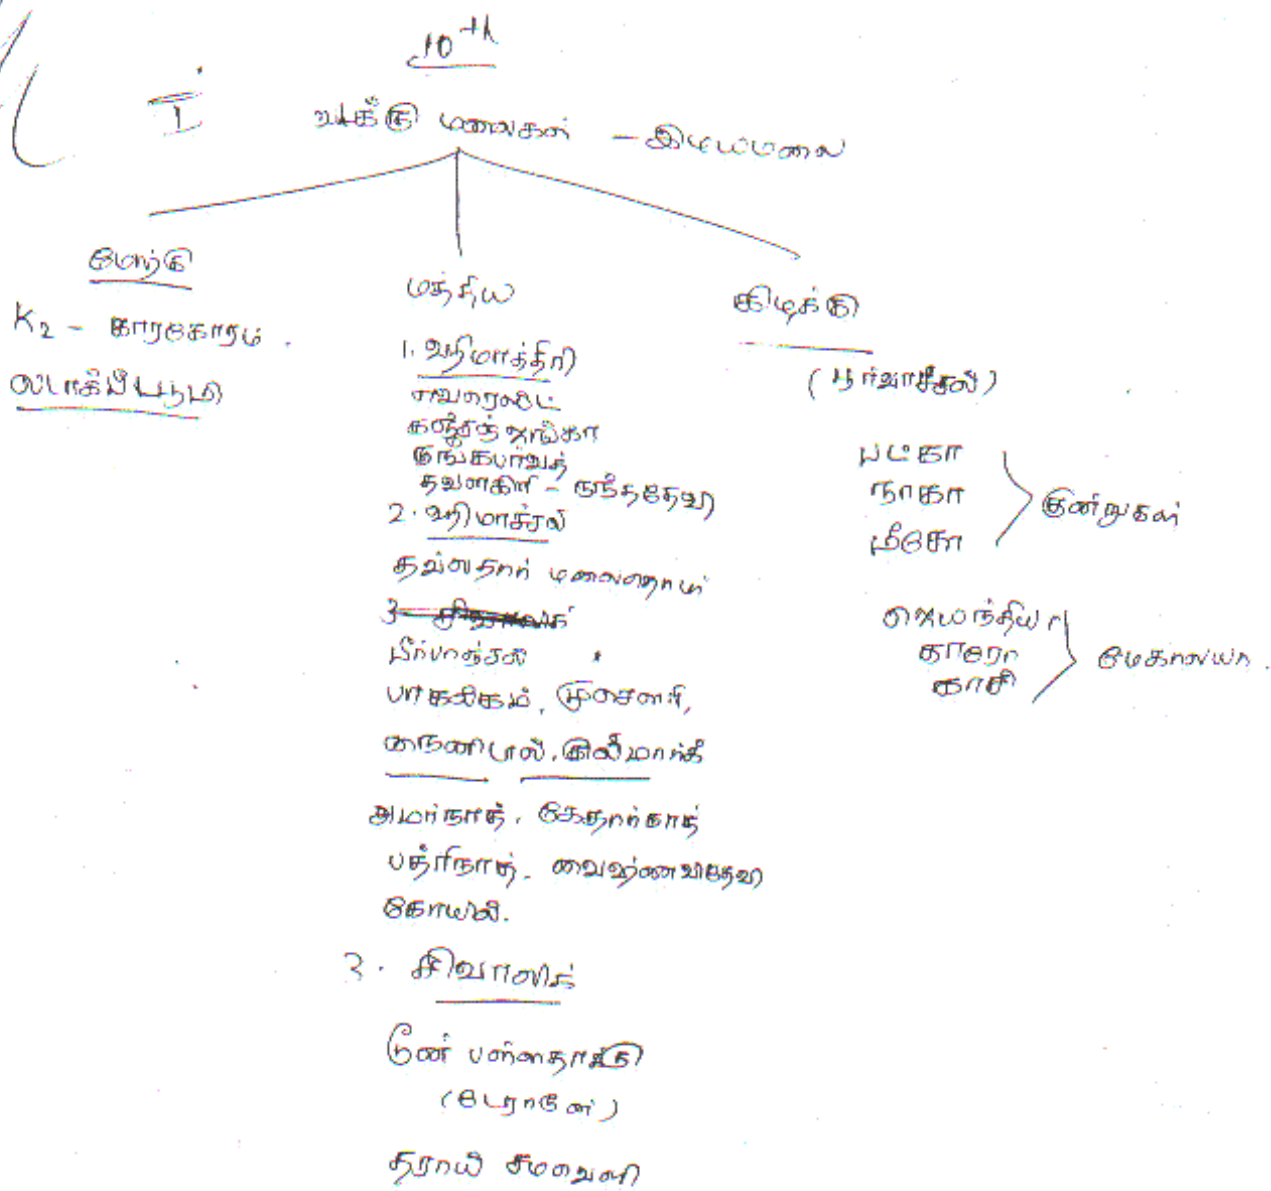 10th
I வடக்கு மலைகள் - இமயமலை
மேற்கு
K2 - காரகோரம்.
லடாக்பீடபூமி
மத்திய
1. ஹிமாத்திரி
எவரெஸ்ட்
கஞ்சன் ஜங்கா
நங்கபர்வத்
தவளகிரி - நந்ததேவி
2. ஹிமாச்சல்
தவ்லதார் மலைதொடர்
3. சிவாலிக்
பீர்பாஞ்சல்
பாகல்கம், முசௌரி,
நைனிடால், குல்மார்க்
அமர்நாத், கேதார்நாத்
பத்ரிநாத், வைஷ்ணவிதேவி
கோயில்.
3. சிவாலிக்
டூன் பள்ளதாக்கு
(டேராடூன்)
தராய் சமவெளி
கிழக்கு
(பூர்வாசல்)
பட்கா
நாகா
மீசோ
குன்றுகள்
ஜெயந்தியா
காரோ
காசி
மேகாலயா.